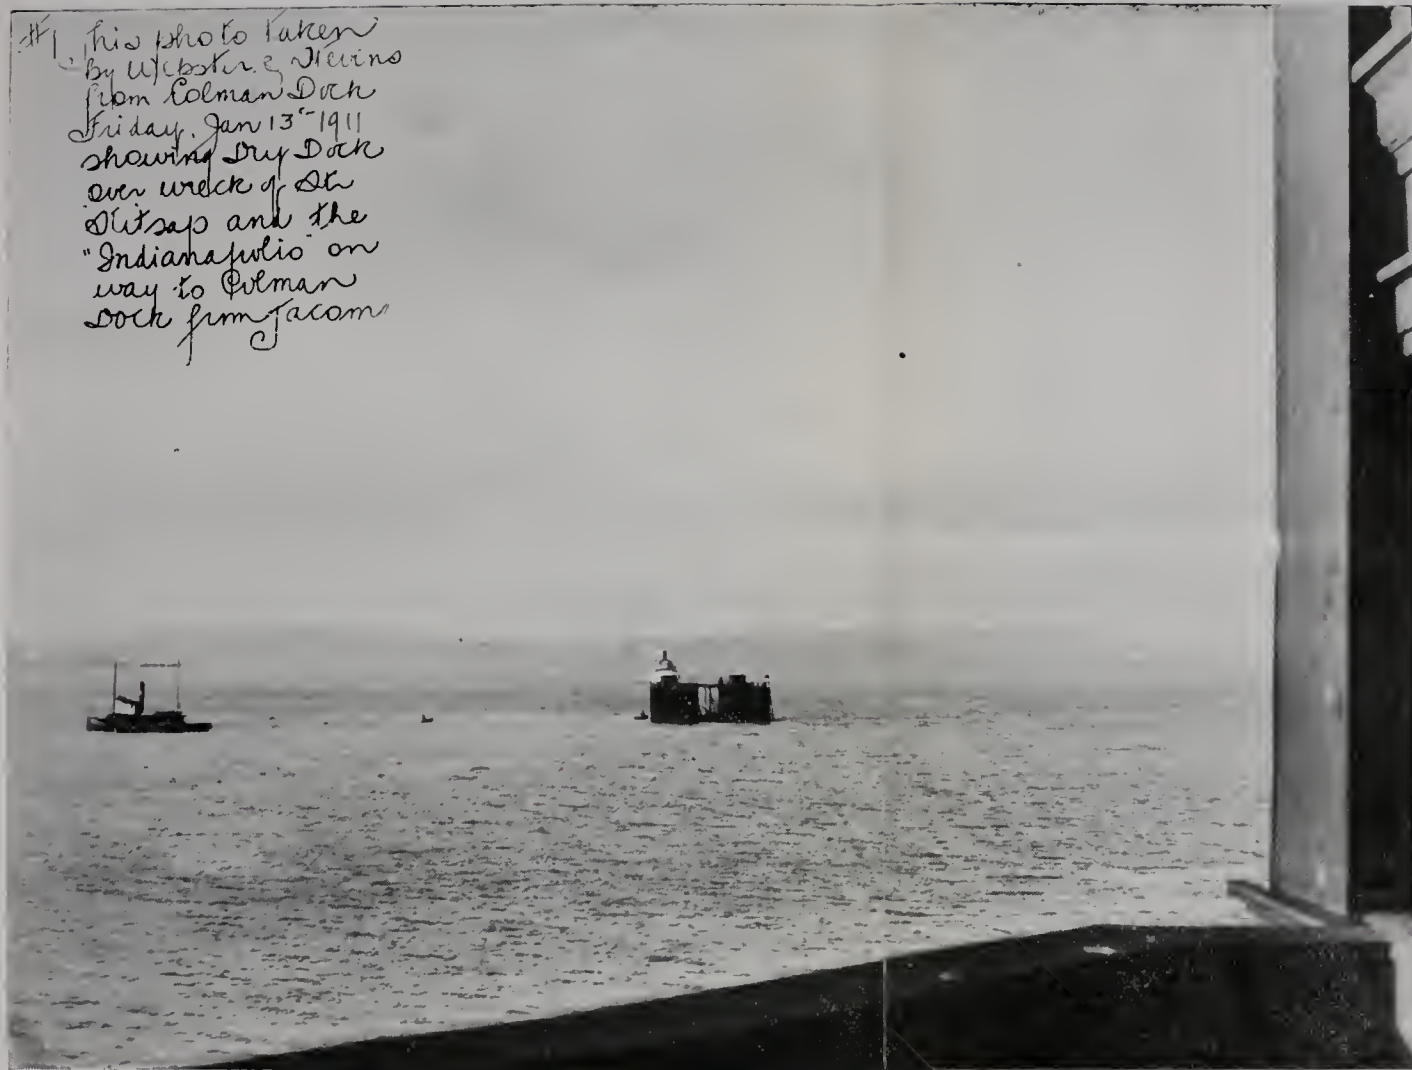 #1 This photo taken
By Webster & Stevens
from Colman Dock
Friday. Jan 13th 1911
showing Dry Dock
over wreck of Str
Kitsap and the
"Indianapolis" on
way to Colman
Dock from Tacoma